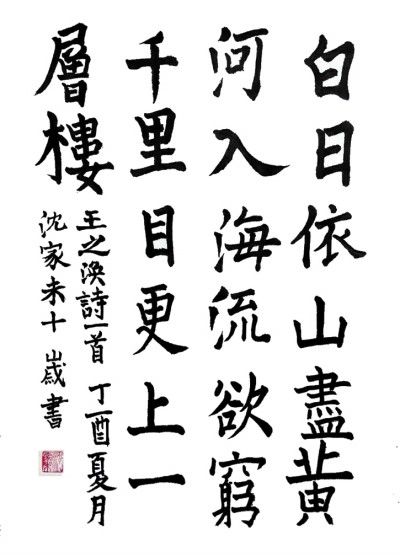 白日依山盡黃
河入海流欲窮
千里目更上一
層樓
王之渙詩一首 丁酉夏月
沈家未十歲書